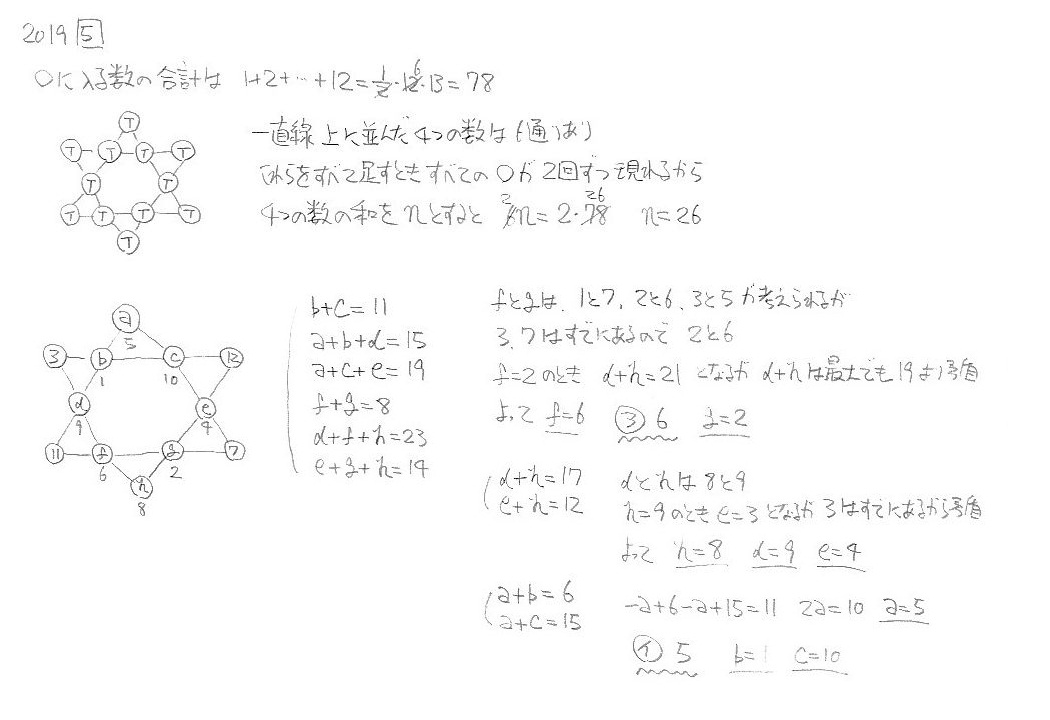 2019 5
○に入る数の合計は 1+2+…+12=1/2・12・13=78 6
T
T T T T
T T
T T T T
T
一直線上に並んだ4つの数は6通りあり
これらをすべて足すとすべての○が2回ずつ現れるから
4つの数の和をnとすると 6n=2・78 n=26 2 26
a
5
3 b c 12
1 10
d e
9 4
11 f g 7
6 2
h
8
b+c=11
a+b+d=15
a+c+e=19
f+g=8
d+f+h=23
e+g+h=14
fとgは、1と7, 2と6、3と5が考えられるが
3、7はすでにあるので 2と6
f=2のとき d+h=21 となるが d+hは最大でも19より矛盾
よって f=6 ③6 g=2
d+h=17 dとhは8と9
e+h=12 h=9のときe=3となるが3はすでにあるから矛盾
よって h=8 d=9 e=4
a+b=6 -a+6-a+15=11 2a=10 a=5
a+c=15
イ 5 b=1 c=10